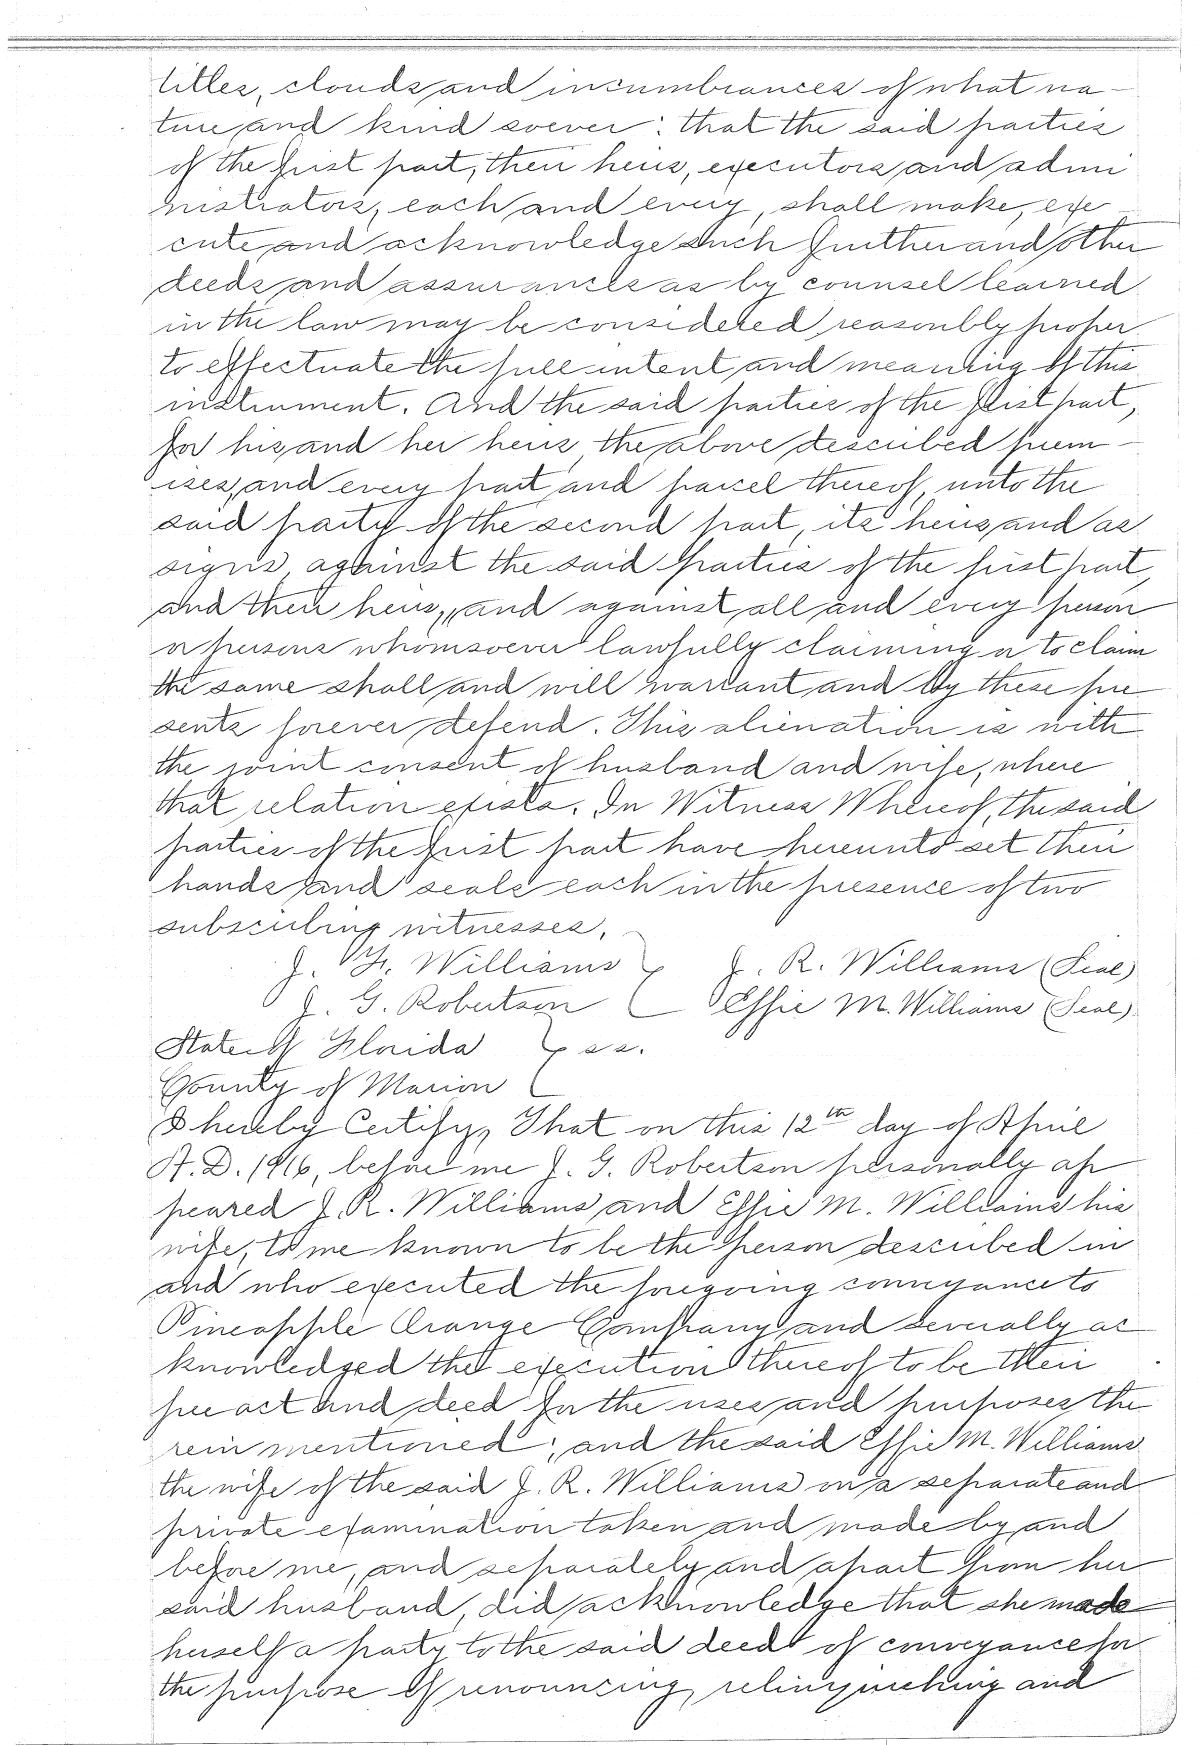 titles, clouds and incumbrances of what na-
ture and kind soever: that the said parties
of the first part, their heirs, executors and admi
nistrators, each and every, shall make, exe-
cute and acknowledge such further and other
deeds and assurances as by counsel learned
in the law may be considered reasonbly proper
to effectuate the full intent and meaning of this
instrument. And the said parties of the first part,
for his and her heirs, the above described prem-
ises, and every part and parcel thereof, unto the
said party of the second part, its heirs and as
signs, against the said parties of the first part,
and their heirs, and against all and every person
or persons whomsoever lawfully claiming or to claim
the same shall and will warrant and by these pre
sents forever defend. This alienation is with
the joint consent of husband and wife, where
that relation exists. In Witness Whereof, the said
parties of the first part have hereunto set their
hands and seals each in the presence of two
subscribing witnesses.
J. F. Williams } J. R. Williams (Seal)
J. G. Robertson } Effie M. Williams (Seal)
State of Florida } ss.
County of Marion }
I hereby Certify, That on this 12th day of April
A.D. 1916, before me J. G. Robertson personally ap
peared J. R. Williams and Effie M. Williams his
wife, to me known to be the person described in
and who executed the foregoing conveyance to
Pineapple Orange Company and severally ac
knowledged the execution thereof to be their
free act and deed for the uses and purposes the
rein mentioned; and the said Effie M. Williams
the wife of the said J. R. Williams on a separate and
private examination taken and made by and
before me, and separately and apart from her
said husband, did acknowledge that she made
herself a party to the said deed of conveyance for
the purpose of renouncing, relinquishing and